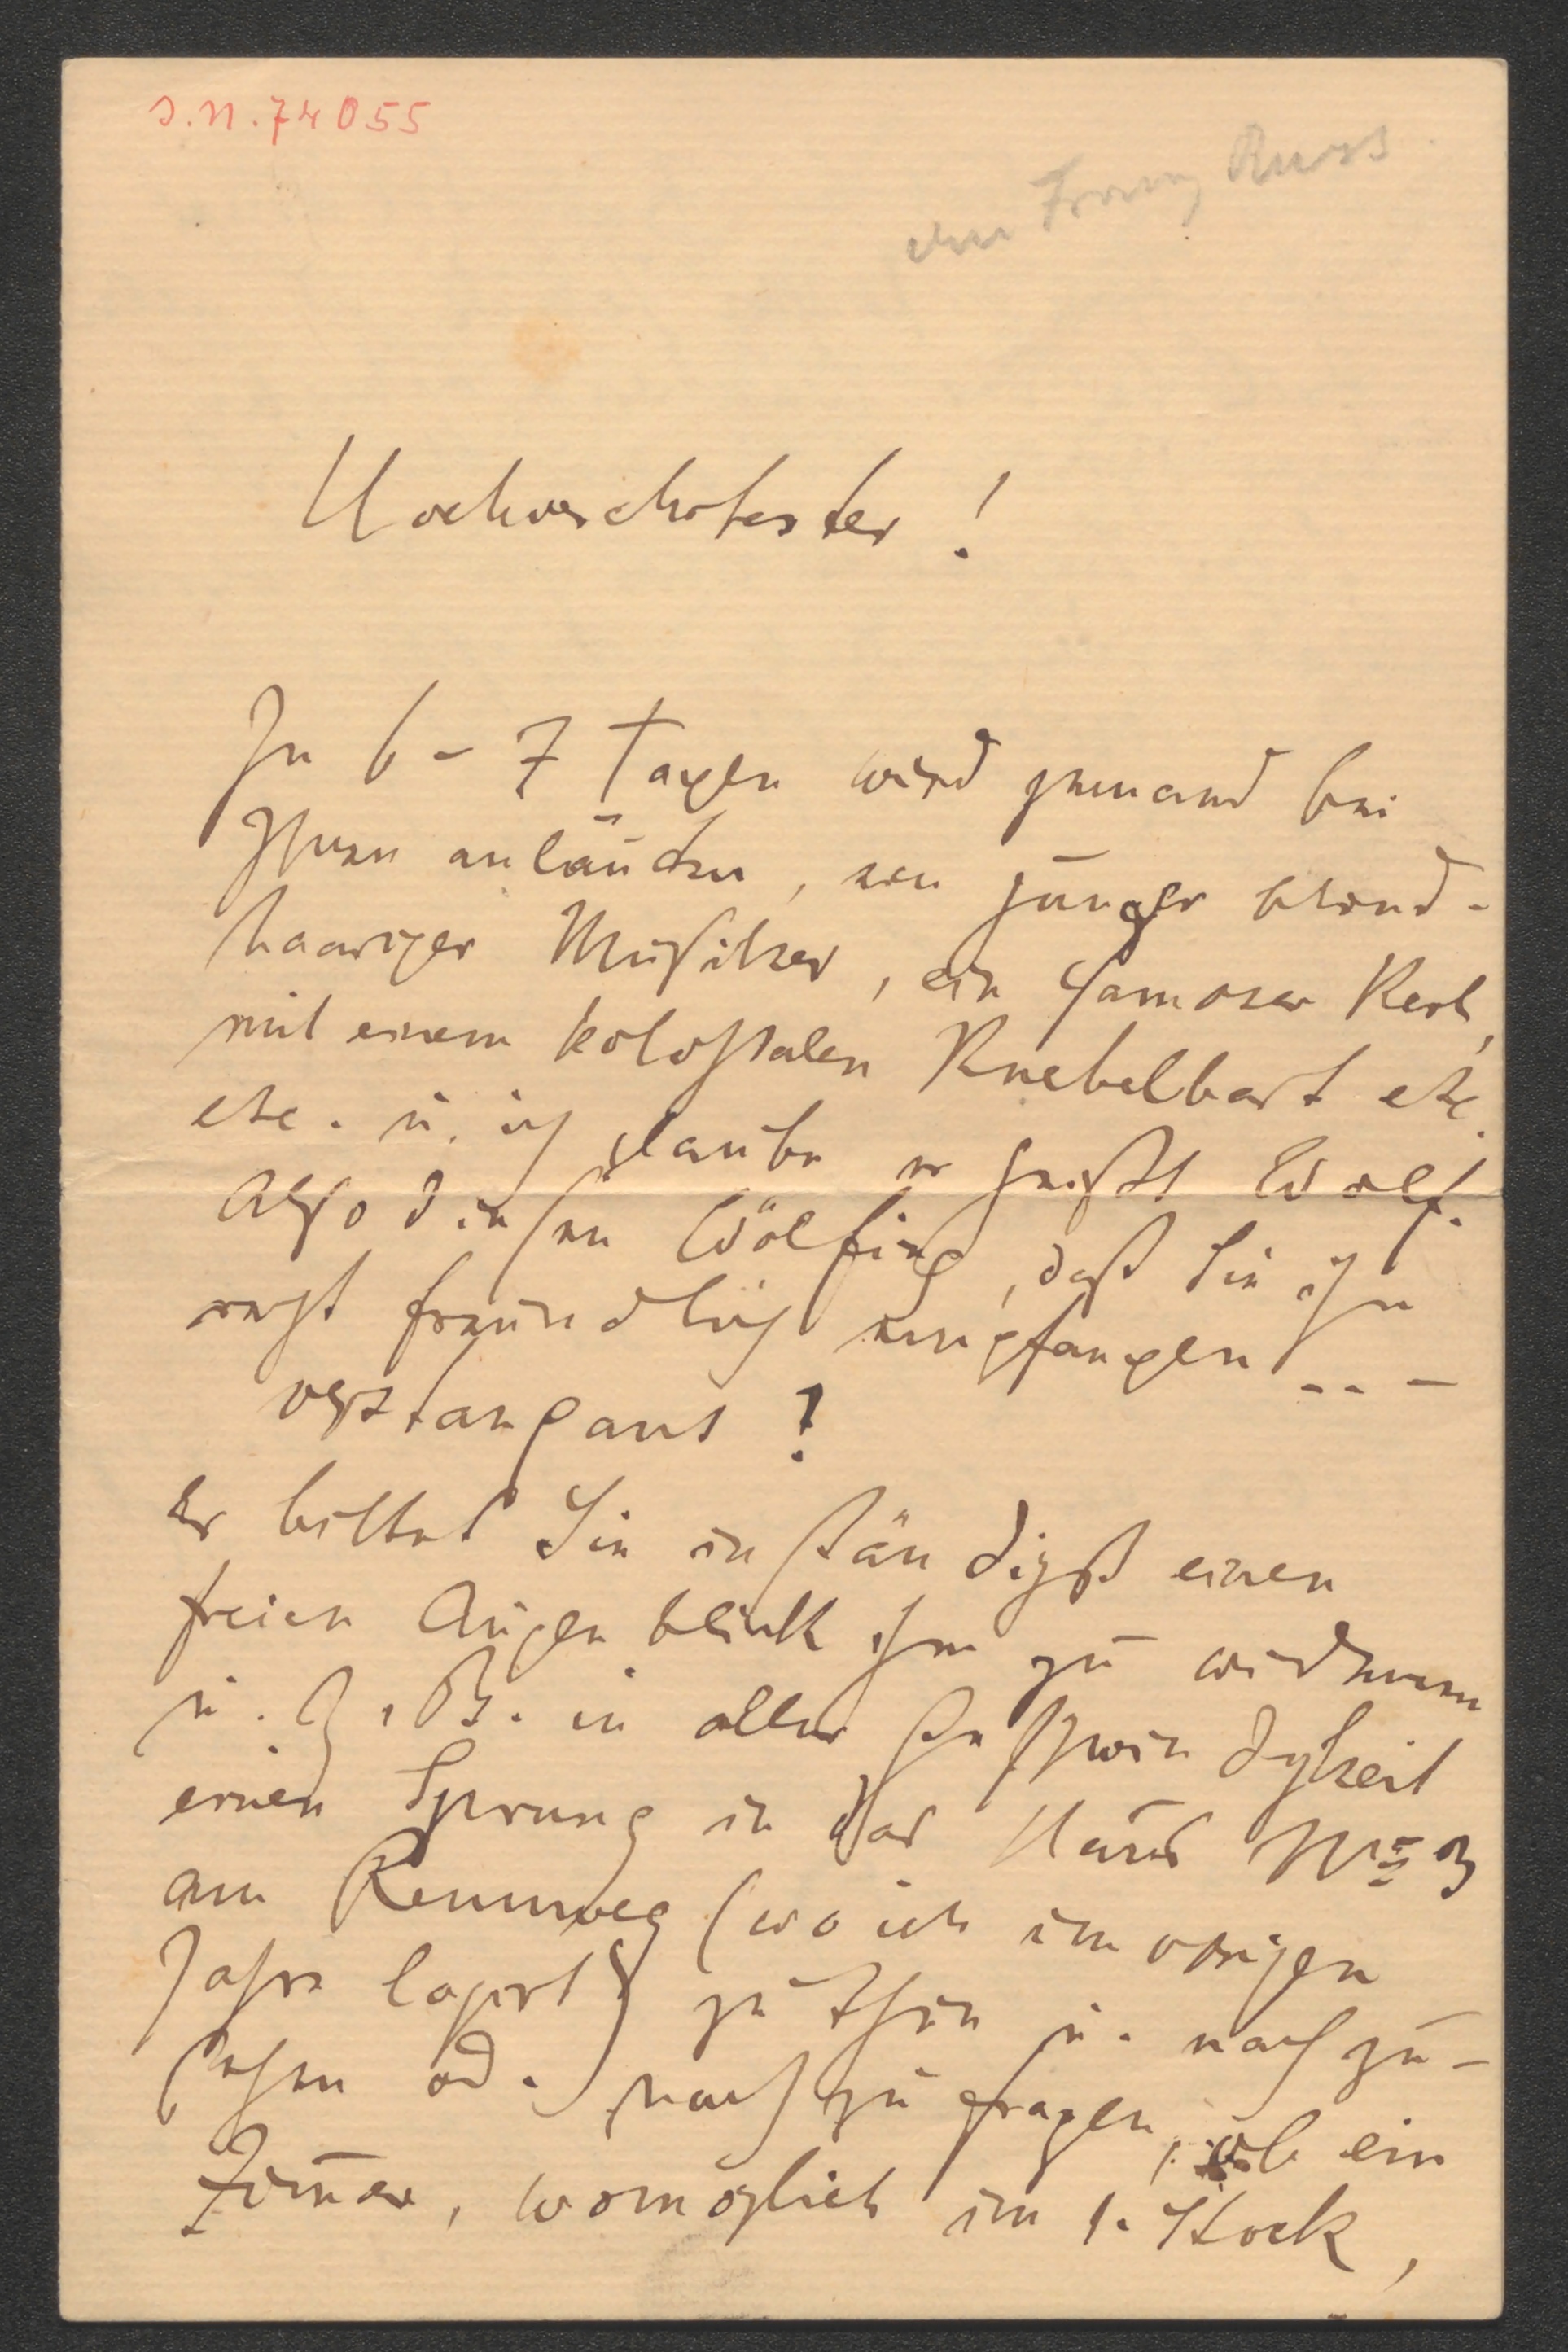 I.N. 74055
an Franz Russ
Hochverehrtester!
In 6 - 7 Tagen wird jemand bei
Ihnen anläuten, ein junger blond-
haariger Musiker, ein famoser Kerl,
mit einem kolossalen Knebelbart etc.
etc. u. ich glaube er heißt Wolf.
Also diesen Wölfing, daß Sie ihn
recht freundlich empfangen - - -
verstangans?
Er bittet Sie inständigst einen
freien Augenblick ihm zu widmen
u. z. B. in aller Geschwindigkeit
einen Sprung in das Haus No 3
am Rennweg (wo ich im vorigen
Jahre logirt) zu thun u. nachzu-
sehen od. nachzufragen, ob ein
Zim̄er, womöglich im 1. Stock,